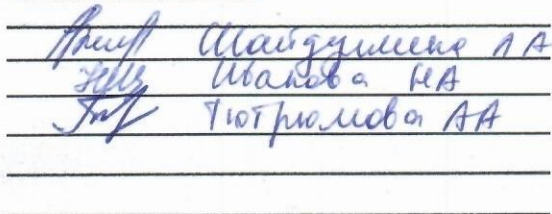 Шайдулина ЛА
Иванова НА
Тютрюмова АА